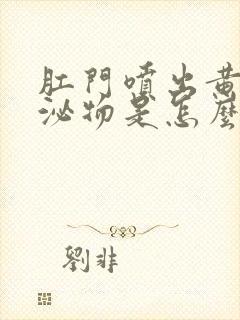 肛門噴出黃
泌物是怎麼
劉非